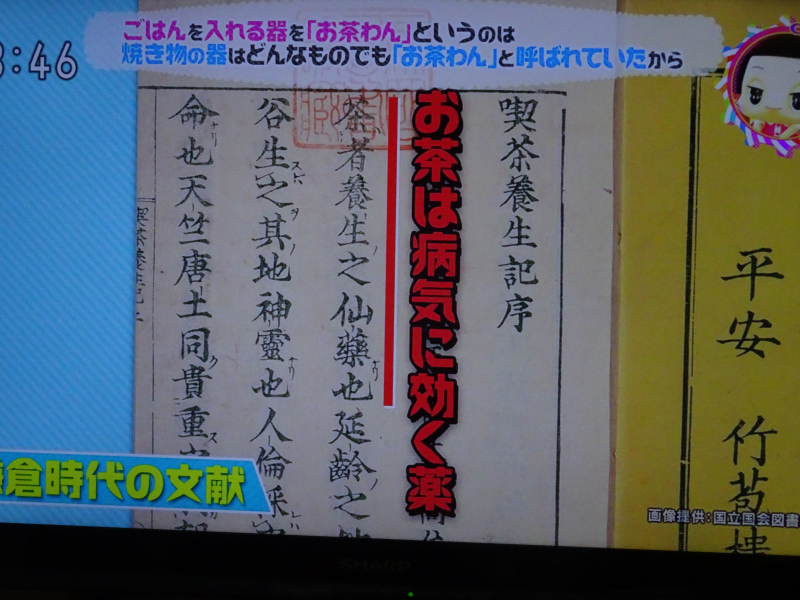 :46
ごはんを入れる器を「お茶わん」というのは
焼き物の器はどんなものでも「お茶わん」と呼ばれていたから
平安 竹苞楼
喫茶養生記序
お茶は病気に効く薬
茶者養生之仙藥也延齡之
谷生之其地神靈也人倫採
命也天竺唐土同貴重
倉時代の文献
画像提供：国立国会図書
SHARP